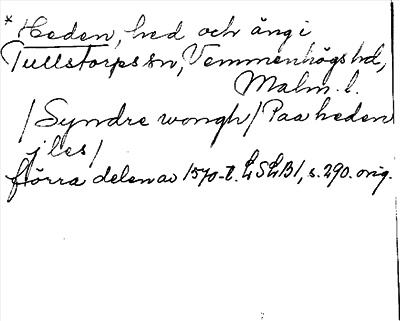 * Heden, hed och äng i
Tullstorps sn, Vemmenhögs hd,
Malm. l.
/Syndre wongh/Paa heden
jles/
förra delen av 1570-t. LSLB1, s. 290. orig.